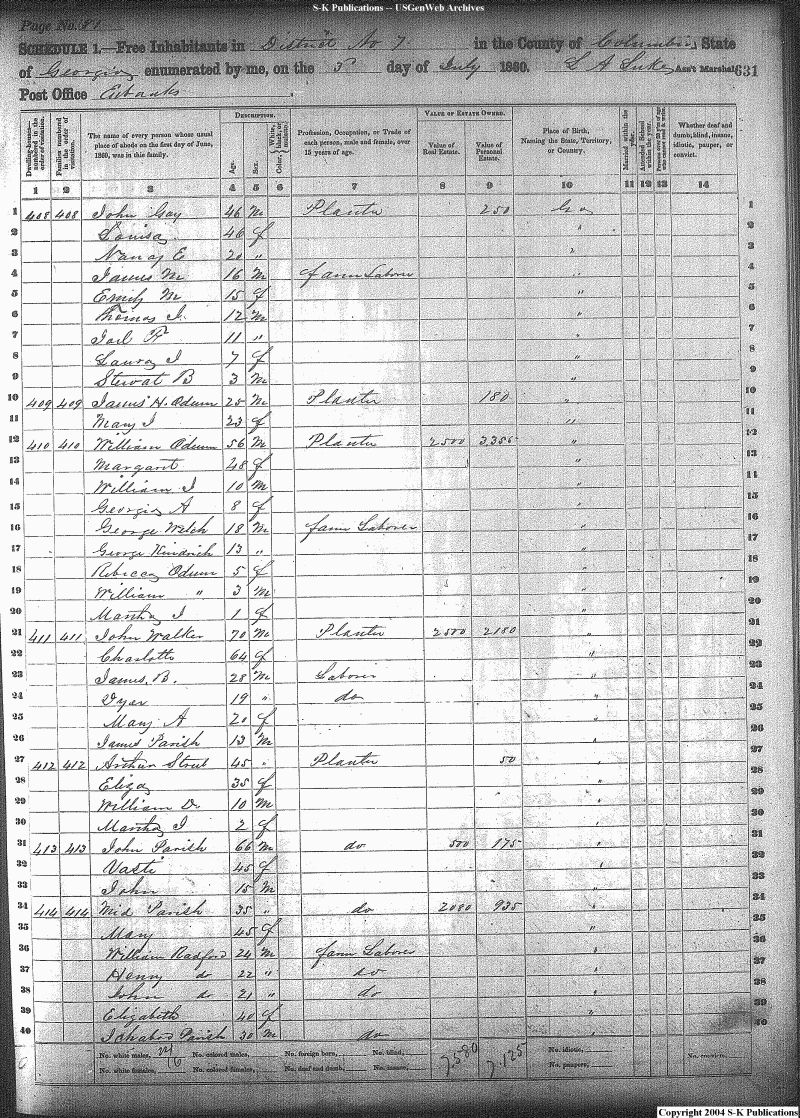 S-K Publications -- USGenWeb Archives
Page No. 81
SCHEDULE 1.—Free Inhabitants in District No 7 in the County of Columbia State
of Georgia enumerated by me, on the 3d day of July 1860. L A Luke Ass't Marshal 631
Post Office Eubanks
DESCRIPTION. VALUE OF ESTATE OWNED.
Dwelling-houses—numbered in the order of visitation. Families numbered in the order of visitation. The name of every person whose usual place of abode on the first day of June, 1860, was in this family. Age. Sex. Color, White, black, or mulatto. Profession, Occupation, or Trade of each person, male and female, over 15 years of age. Value of Real Estate. Value of Personal Estate. Place of Birth, Naming the State, Territory, or Country. Married within the year. Attended School within the year. Whether deaf and dumb, blind, insane, idiotic, pauper, or convict.
1 2 3 4 5 6 7 8 9 10 11 12 13 14
1 408 408 John Gay 46 M Planter 250 Ga 1
2 Louisa 46 f " 2
3 Nancy E 20 " " 3
4 James M 16 M farm Laborer 4
5 Emily M 15 f " 5
6 Thomas J. 12 M " 6
7 F 11 " " 7
8 Laura J 7 f " 8
9 Stewat B 3 M " 9
10 409 409 James H. Odum 25 M Planter 180 " 10
11 Mary J 23 f " 11
12 410 410 William Odum 56 M Planter 2500 3355 " 12
13 Margaret 48 f " 13
14 William J 10 M 11
15 Georgia A 8 f " 15
16 George Welch 18 M farm Laborer " 16
17 George Kindrich 13 " " 17
18 Rebecca Odum 5 f " 18
19 William " 3 M " 19
20 Martha J 1 f 20
21 411 411 John Walker 70 M Planter 2500 2180 " 21
22 Charlotte 64 f " 22
23 James. B. 28 M Laborer " 23
24 Dyar 19 " do " 24
25 Mary A 20 f " 25
26 James Parish 13 M " 26
27 412 412 Arthur Street 45 " Planter 50 " 27
28 Eliza 35 f " 28
29 William D. 10 M " 29
30 Martha J 2 f " 30
31 413 413 John Parish 66 M do 500 175 " 31
32 Vasti 45 f 32
33 John 15 M " 33
34 414 414 Mid Parish 35 " do 2080 935 " 34
35 Mary 45 f " 35
36 William Radford 24 M farm Laborer " 36
37 Henry do 22 " do " 37
38 John do 21 " do 38
39 Elizabeth 40 f " 39
40 Ichabod Parish 30 M do " 40
No. white males, 24 No. colored males, No. foreign born, No. blind, 7,580 7,125 No. idiotic, No. convicts,
No. white females, 16 No. colored females, No. deaf and dumb, No. insane, No. paupers,
Copyright 2004 S-K Publications